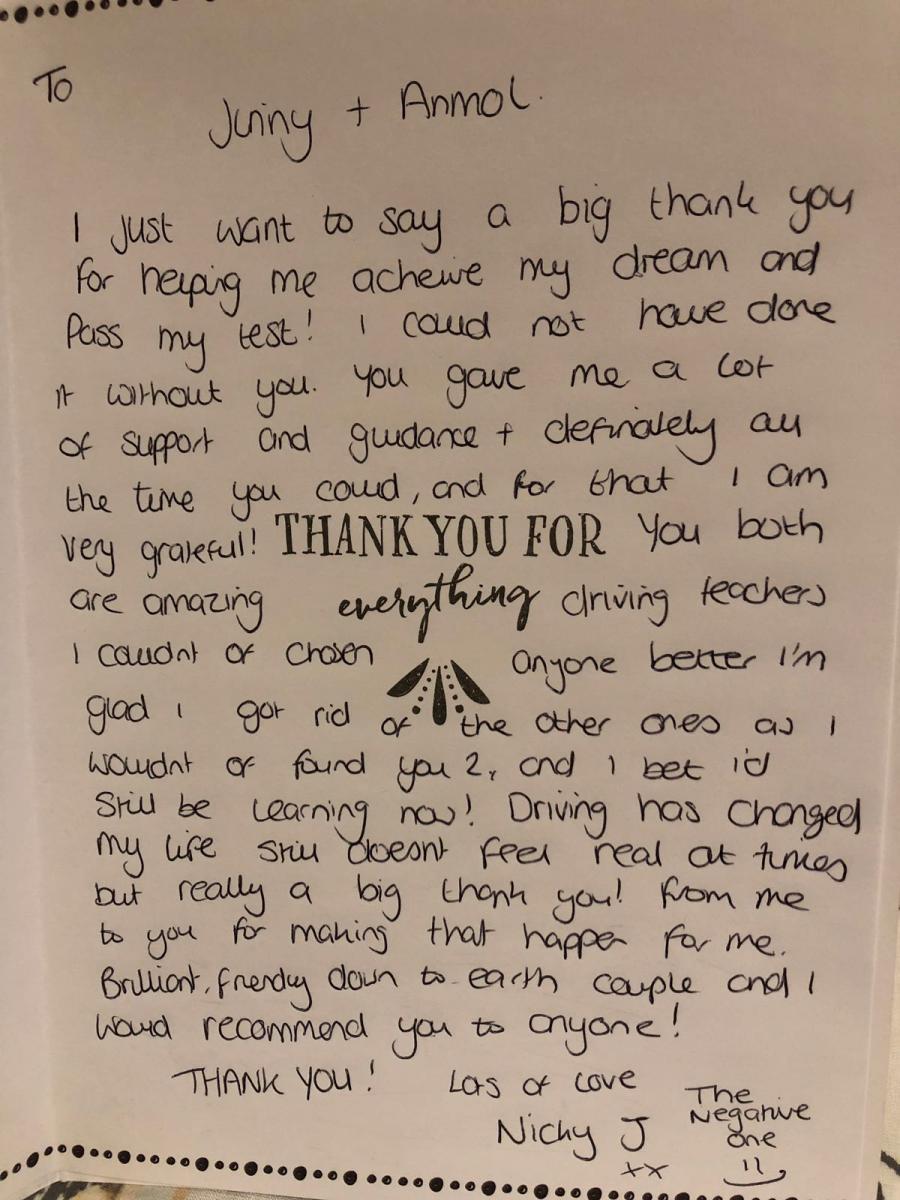 To
Jiiny + Anmol.
I just want to say a big thank you
for helping me acheive my dream and
Pass my test! I could not have done
it without you. You gave me a lot
of support and guidance + definately all
the time you could, and for that I am
very grateful! THANK YOU FOR You both
are amazing everything driving teachers
I couldnt of chosen anyone better I'm
glad I got rid of the other ones as I
wouldnt of found you 2, and I bet i'd
Still be learning now! Driving has changed
my life still doesnt feel real at times
but really a big thank you! from me
to you for making that happen for me.
Brilliant, friendly down to earth couple and I
would recommend you to anyone!
THANK YOU! Lots of love
Nicky J
xx
The
Negative
one